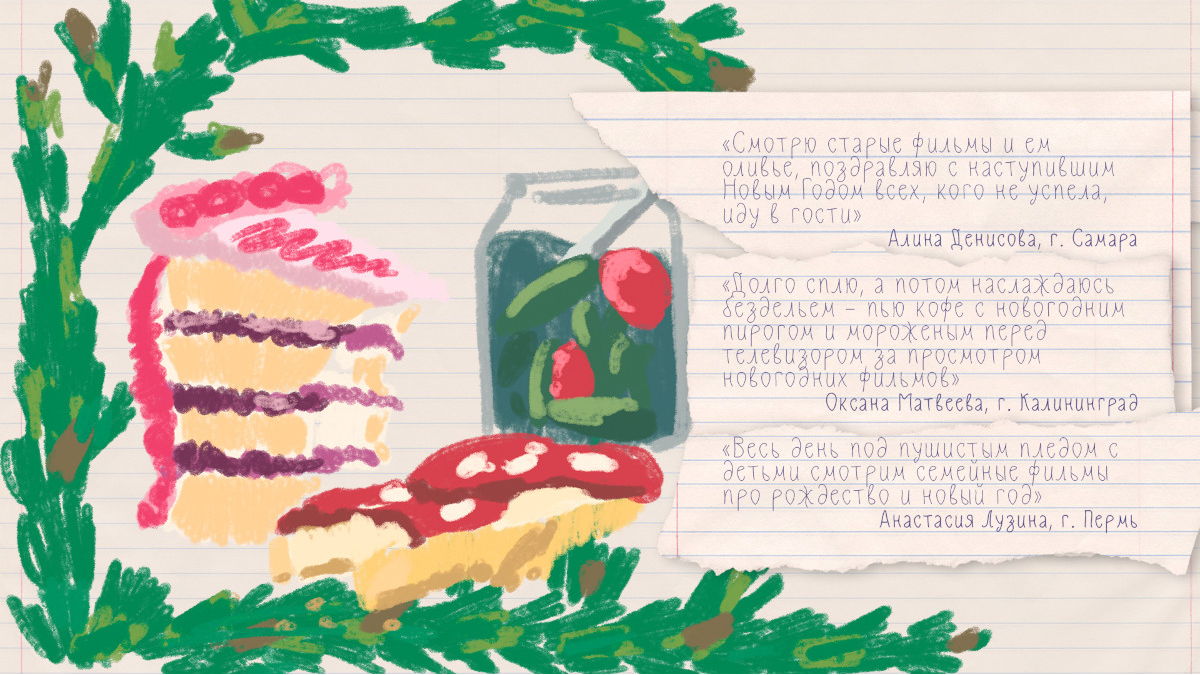 «Смотрю старые фильмы и ем
оливье, поздравляю с наступившим
Новым Годом всех, кого не успела,
иду в гости»
Алина Денисова, г. Самара
«Долго сплю, а потом наслаждаюсь
бездельем – пью кофе с новогодним
пирогом и мороженым перед
телевизором за просмотром
новогодних фильмов»
Оксана Матвеева, г. Калининград
«Весь день под пушистым пледом с
детьми смотрим семейные фильмы
про рождество и новый год»
Анастасия Лузина, г. Пермь